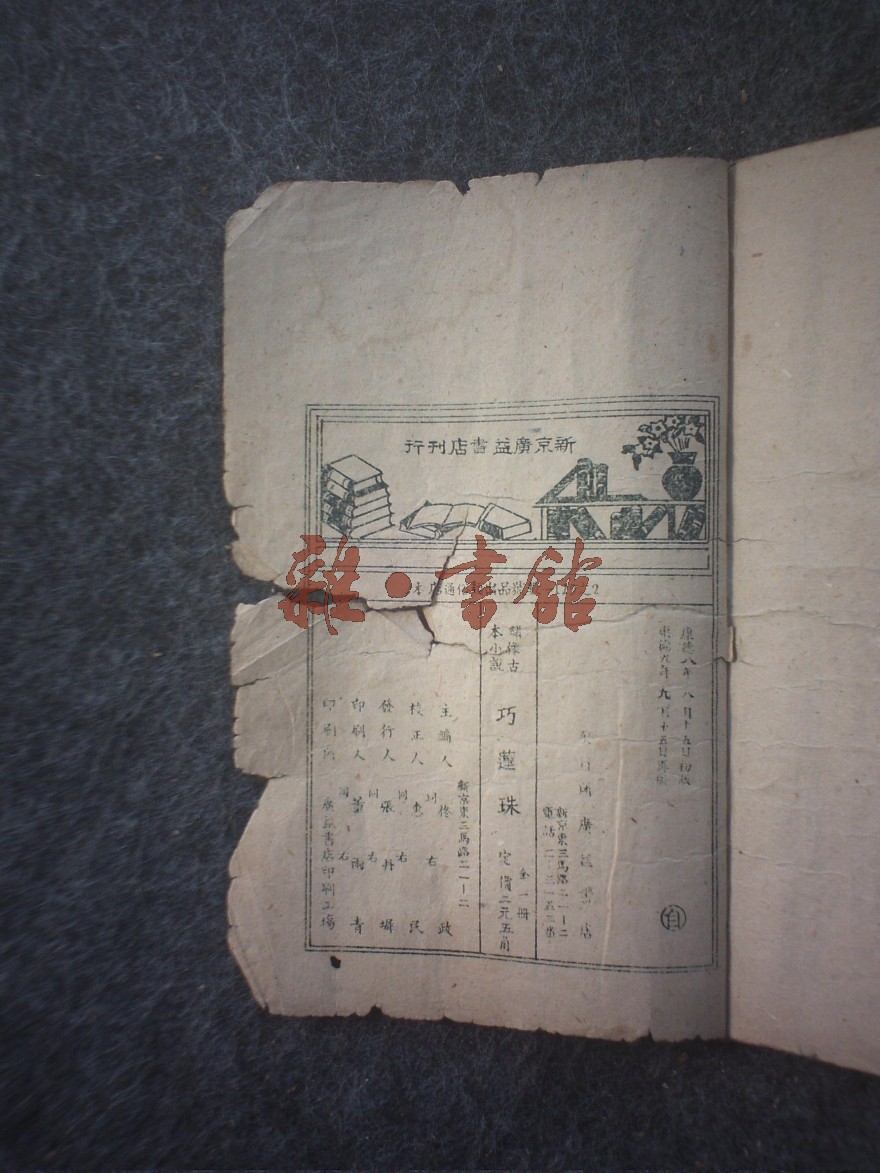 新京廣益書店刊行
雜·書館
康德八年八月十五日初版
康德九年九月十五日再版
自
廣益書店
新京東三馬路二一ー二
電話二ー三一五三番
繪像古
本小說
巧蓮珠
全一冊
定價二元五角
新京東三馬路二一ー二
主編人 佟 政
校正人 同右 惠民
發行人 同右 張丹墀
印刷人 同右 蕭雨青
印刷所 同右 廣益書店印刷工場